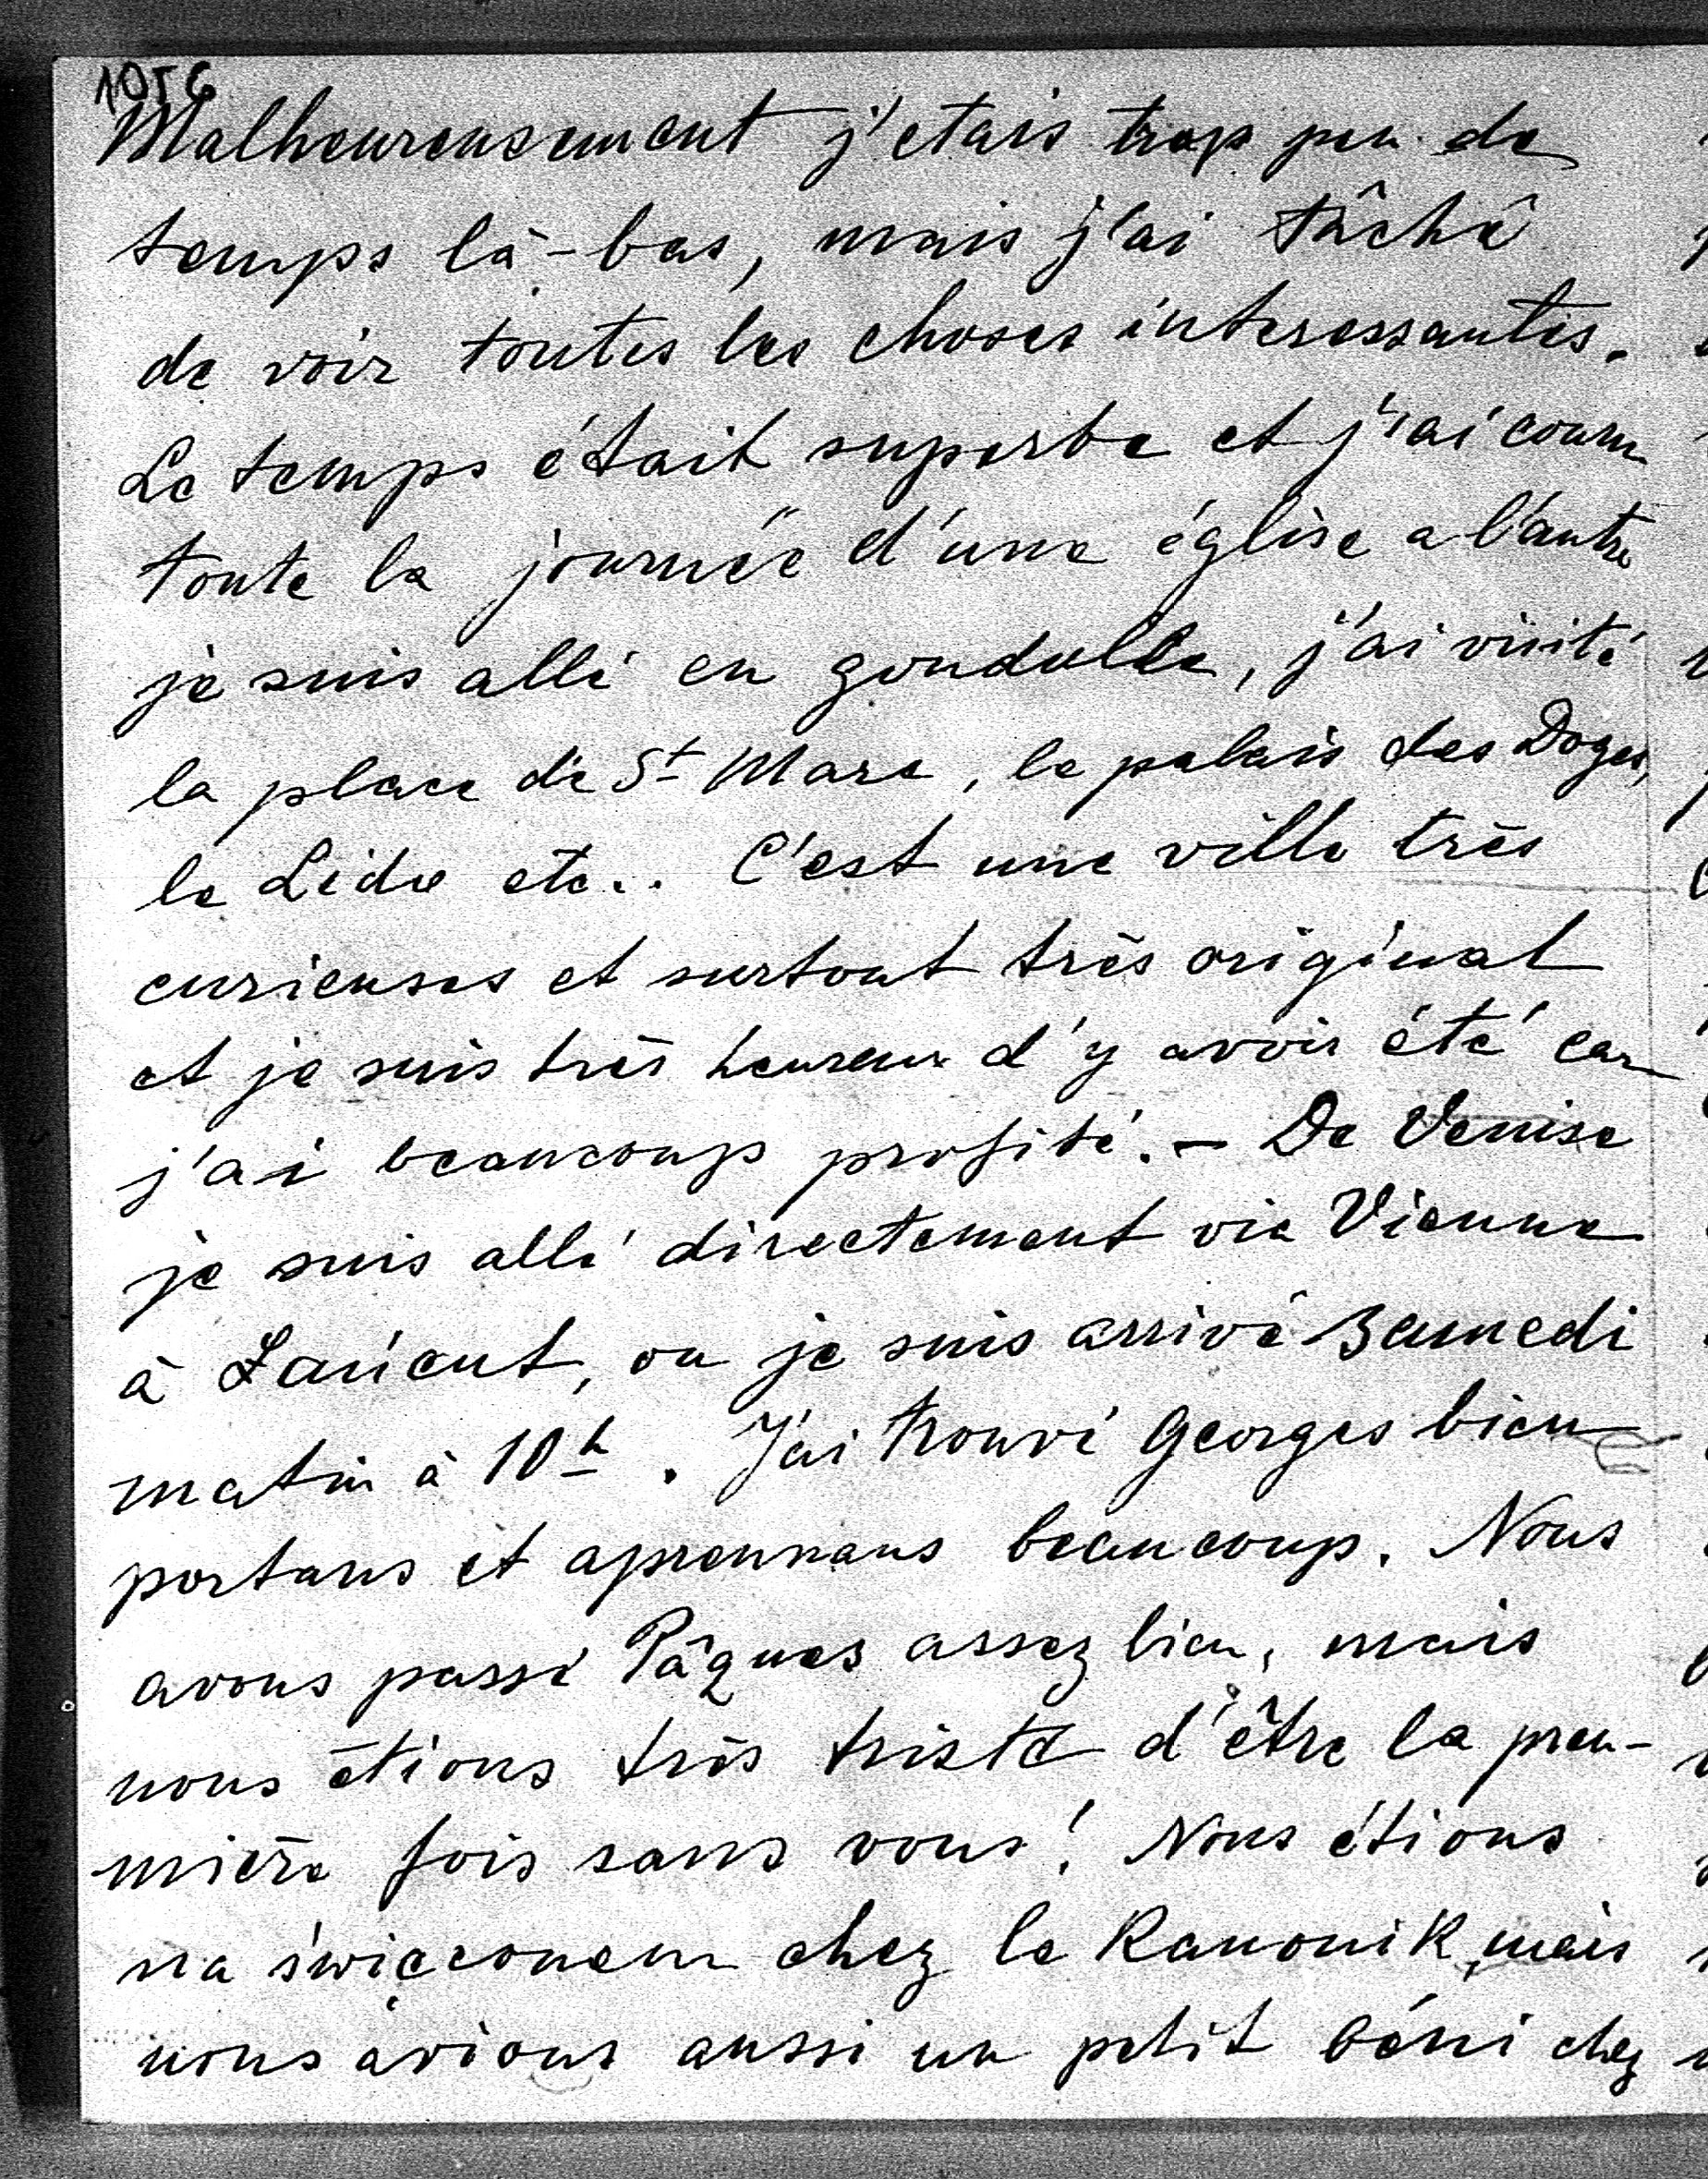 1056
Malheureusement j'etais trop peu de
temps là-bas, mais j'ai tâché
de voir toutes les choses interessantes.
Le temps était superbe et j'ai couru
toute la journée d'une église a l'autre
je suis allé en gondolle, j'ai visité
la place de St Marc, le palais des Doges,
le Lido etc.. C'est une ville très
curieuses et surtout très original
et je suis très heureux d'y avoir été car
j'ai beaucoup profité. – De Venise
je suis allé directement via Vienne
à Łańcut, ou je suis arrivé samedi
matin à 10h. J'ai trouvé Georges bien
portans et aprennans beaucoup. Nous
avons passé Pâques assez bien, mais
nous étions très triste d'être la preu-
mière fois sans vous! Nous étions
na święconem chez le Kanonik, mais
nous avions aussi un petit béni chez